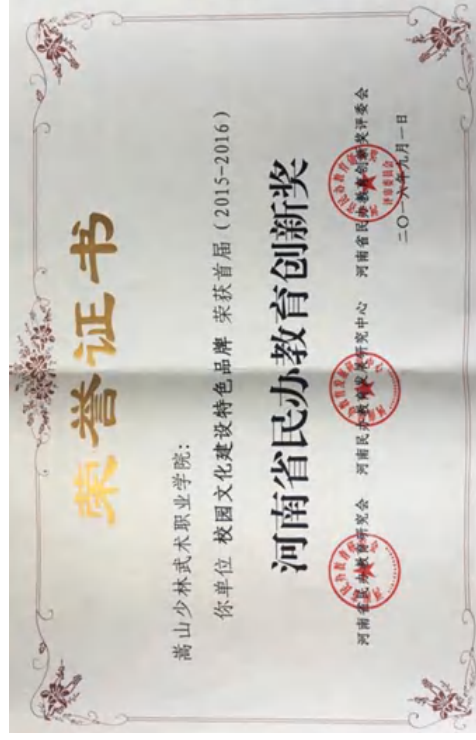 荣誉证书
嵩山少林武术职业学院：
你单位 校园文化建设特色品牌 荣获首届（2015-2016）
河南省民办教育创新奖
河南省民办教育研究会 河南民办教育发展研究中心 河南省民办教育创新奖评委会
评审委员会
二〇一六年九月一日